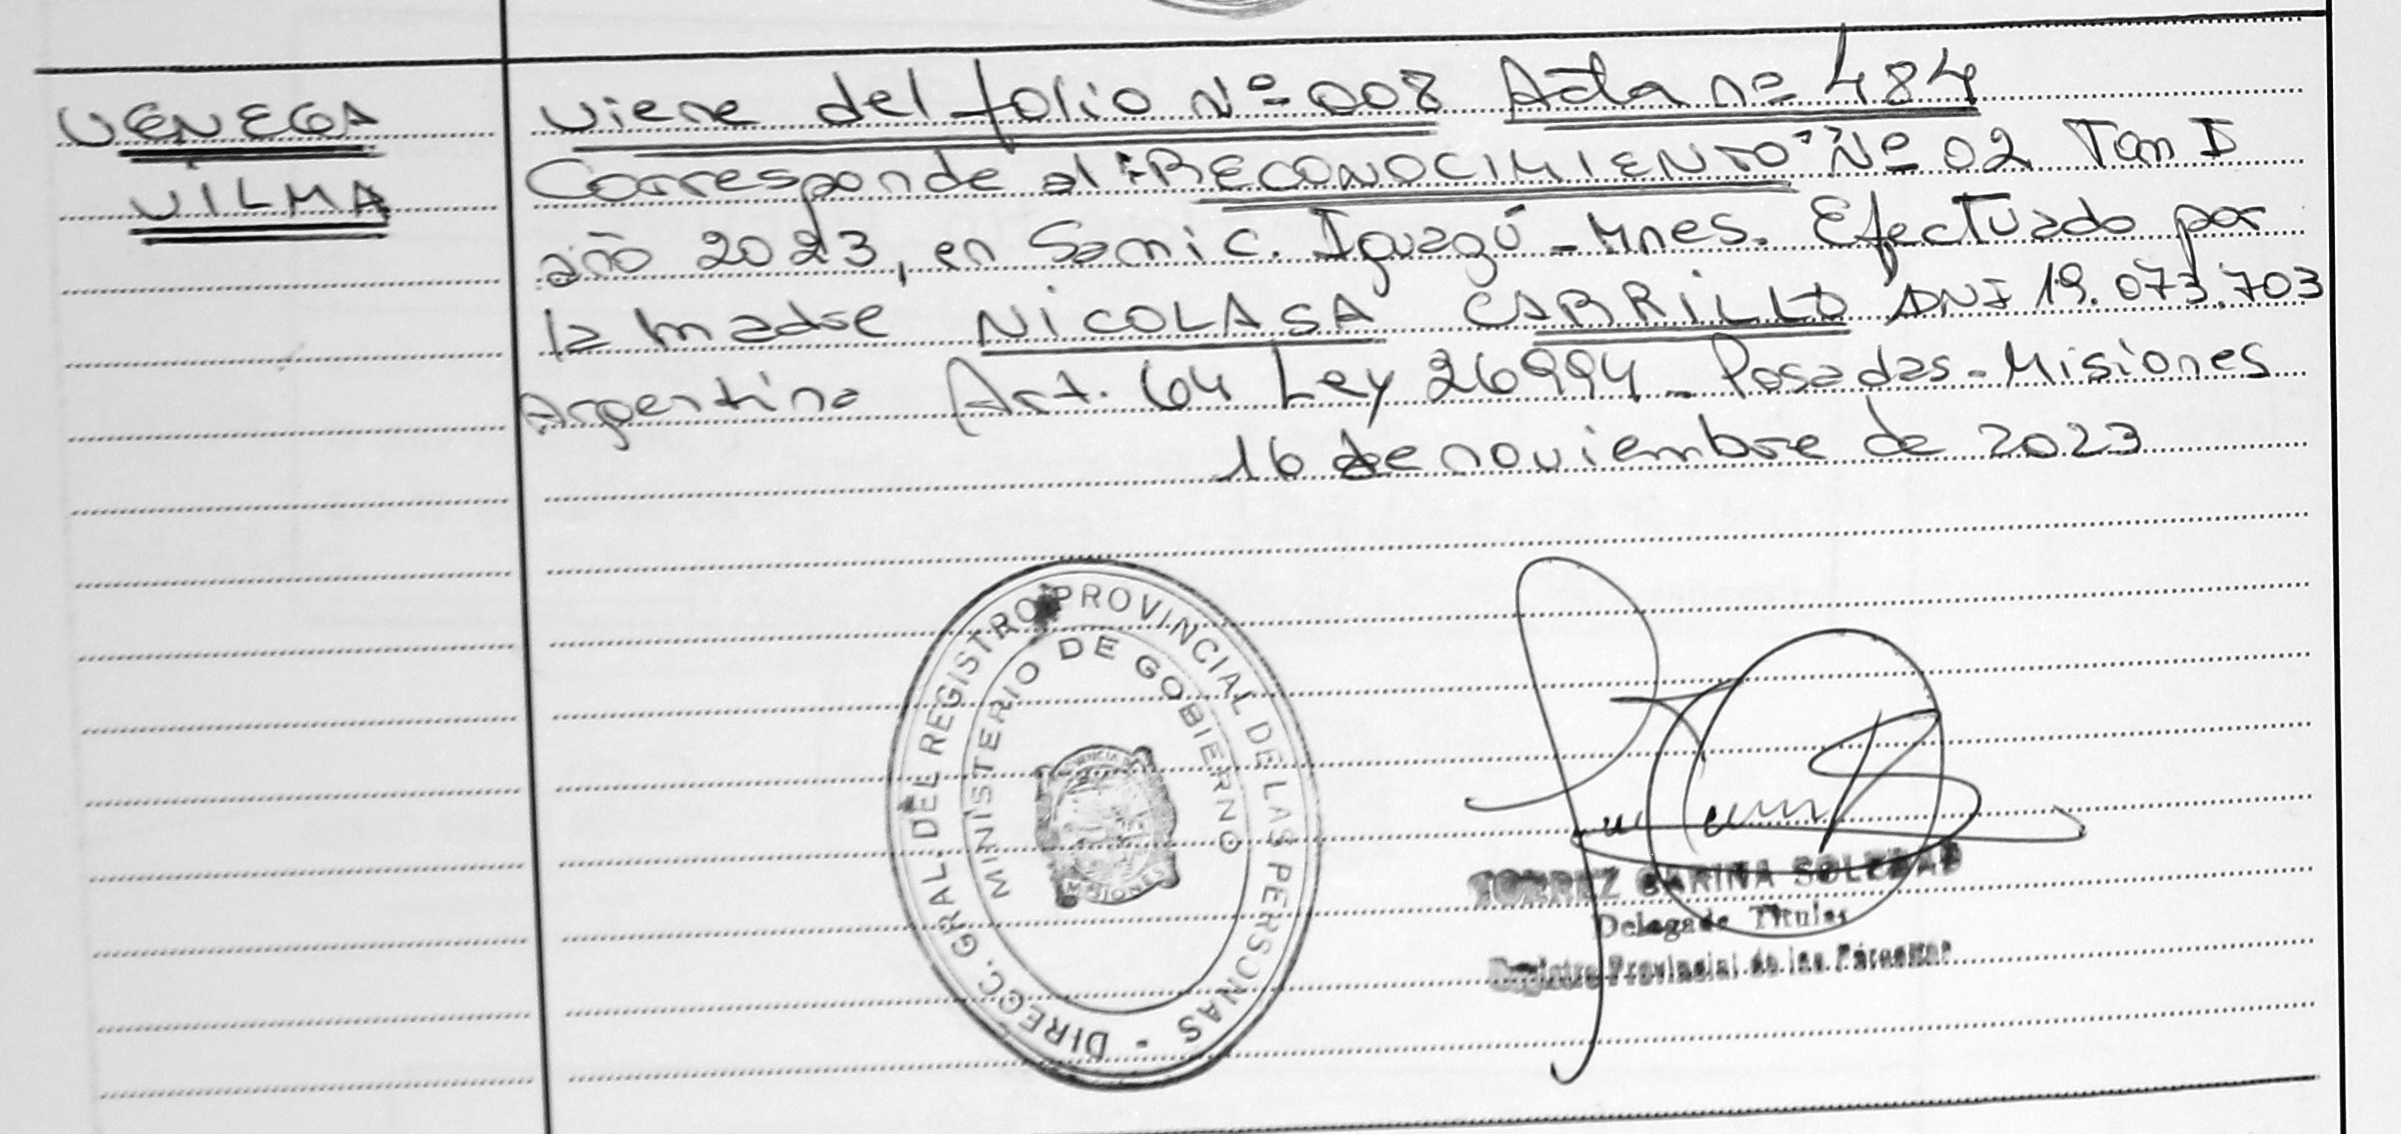 VENEGA
VILMA
Viene del folio Nº 008 Acta nº 484
Corresponde al "RECONOCIMIENTO" Nº 02 Tom I
año 2023, en Samic. Iguazú - Mnes. Efectuado por
la madre NICOLASA CABRILLO DNI 19.073.703
Argentina Art. 64 Ley 26994 - Posadas - Misiones
16 de noviembre de 2023
DIRECC. GRAL. DEL REGISTRO PROVINCIAL DE LAS PERSONAS -
MINISTERIO DE GOBIERNO
PROVINCIA DE
MISIONES
TORREZ CARINA SOLEDAD
Delegada Titular
Registro Provincial de las Personas